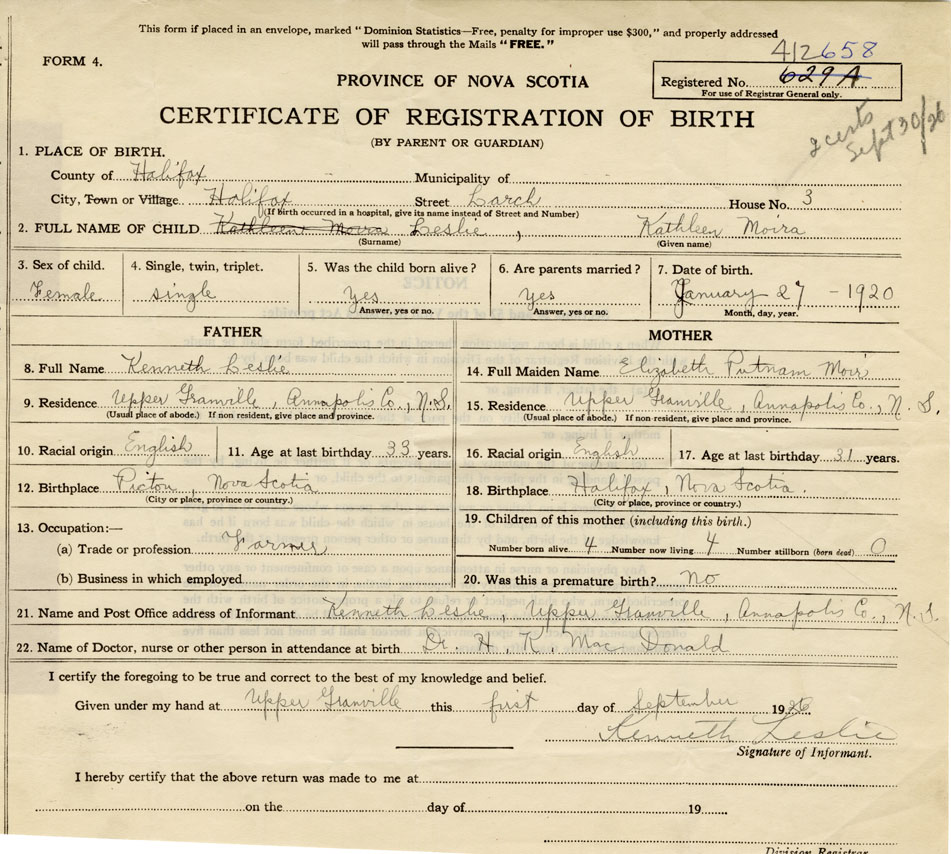 This form if placed in an envelope, marked "Dominion Statistics—Free, penalty for improper use $300," and properly addressed
will pass through the Mails "FREE."
412658
FORM 4.
PROVINCE OF NOVA SCOTIA
Registered No. 629A
For use of Registrar General only.
CERTIFICATE OF REGISTRATION OF BIRTH
2 certs
Sept 30/26
(BY PARENT OR GUARDIAN)
1. PLACE OF BIRTH.
County of Halifax Municipality of
City, Town or Village Halifax Street Larch House No. 3
(If birth occurred in a hospital, give its name instead of Street and Number)
2. FULL NAME OF CHILD Kathleen Moira Leslie, Kathleen Moira
(Surname) (Given name)
3. Sex of child. 4. Single, twin, triplet. 5. Was the child born alive? 6. Are parents married? 7. Date of birth.
Female single yes yes January 27 - 1920
Answer, yes or no. Answer, yes or no. Month, day, year.
FATHER MOTHER
8. Full Name Kenneth Leslie 14. Full Maiden Name Elizabeth Putnam Moir
9. Residence Upper Granville, Annapolis Co., N.S. 15. Residence Upper Granville, Annapolis Co., N.S.
(Usual place of abode.) If non resident, give place and province. (Usual place of abode.) If non-resident, give place and province.
10. Racial origin English 11. Age at last birthday 33 years. 16. Racial origin English 17. Age at last birthday 31 years.
12. Birthplace Pictou, Nova Scotia 18. Birthplace Halifax, Nova Scotia.
(City or place, province or country.) (City or place, province or country.)
13. Occupation:— 19. Children of this mother (including this birth.)
(a) Trade or profession Farmer Number born alive 4 Number now living 4 Number stillborn (born dead) 0
(b) Business in which employed 20. Was this a premature birth? No
21. Name and Post Office address of Informant Kenneth Leslie, Upper Granville, Annapolis Co., N.S.
22. Name of Doctor, nurse or other person in attendance at birth Dr. H. K. Mac Donald
I certify the foregoing to be true and correct to the best of my knowledge and belief.
Given under my hand at Upper Granville this first day of September 1926
Kenneth Leslie
Signature of Informant.
I hereby certify that the above return was made to me at
on the day of 19
Division Registrar